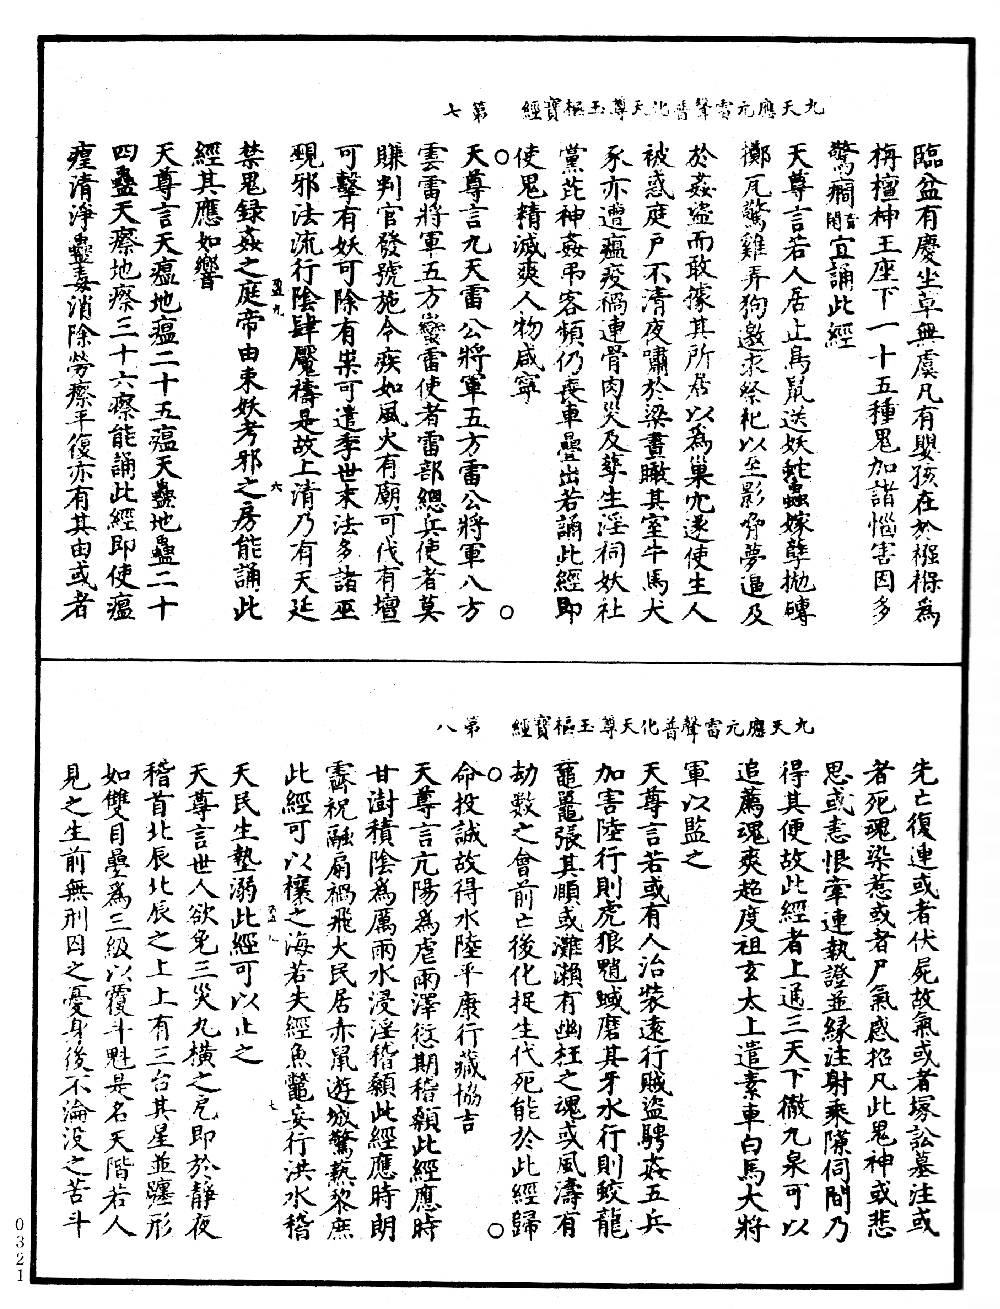 九天應元雷聲普化天尊玉樞寶經　第七
臨盆有慶坐草無虞凡有嬰孩在於襁褓為
栴檀神王座下一十五種鬼加諸惱害因多
驚癇宜誦此經
天尊言若人居止鳥鼠送妖蛇蟲嫁孽抛磚
擲瓦驚雞弄狗邀求祭祀以至影脅夢逼及
於姦盜而敢據其所居以為巢穴遂使生人
被惑庭户不清夜嘯於梁晝瞰其室牛馬犬
豕亦遭瘟疫禍連骨肉災及孳生淫祠妖社
黨庇神姦弔客頻仍喪車疊出若誦此經即
使鬼精滅爽人物咸寧
天尊言九天雷公將軍五方雷公將軍八方
雲雷將軍五方蠻雷使者雷部總兵使者莫
賺判官發號施令疾如風火有廟可伐有壇
可擊有妖可除有祟可遣季世末法多諸巫
覡邪法流行陰肆魘禱是故上清乃有天延
禁鬼録姦之庭帝由束妖考邪之房能誦此
經其應如響
天尊言天瘟地瘟二十五瘟天蠱地蠱二十
四蠱天瘵地瘵三十六瘵能誦此經即使瘟
㾮清淨蠱毒消除勞瘵平復亦有其由或者
九天應元雷聲普化天尊玉樞寶經　第八
先亡復連或者伏屍故氣或者塚訟墓注或
者死魂染惹或者尸氣感招凡此鬼神或悲
思或恚恨牽連執證並緣注射乘隙伺間乃
得其便故此經者上通三天下徹九泉可以
追薦魂爽超度祖玄太上遣素車白馬大將
軍以監之
天尊言若或有人治裝遠行賊盜騁姦五兵
加害陸行則虎狼魑蜮磨其牙水行則蛟龍
黿鼉張其頤或灘瀨有幽枉之魂或風濤有
劫數之會前亡後化捉生代死能於此經歸
命投誠故得水陸平康行藏協吉
天尊言亢陽為虐雨澤愆期稽顙此經應時
甘澍積陰為厲雨水浸淫稽顙此經應時朗
霽祝融扇禍飛火民居赤鼠遊城驚爇黎庶
此經可以禳之海若失經魚鼈妄行洪水稽
天民生墊溺此經可以止之
天尊言世人欲免三災九橫之厄即於靜夜
稽首北辰北辰之上上有三台其星並躔形
如雙目疊為三級以覆斗魁是名天階若人
見之生前無刑囚之憂身後不淪没之苦斗
0321